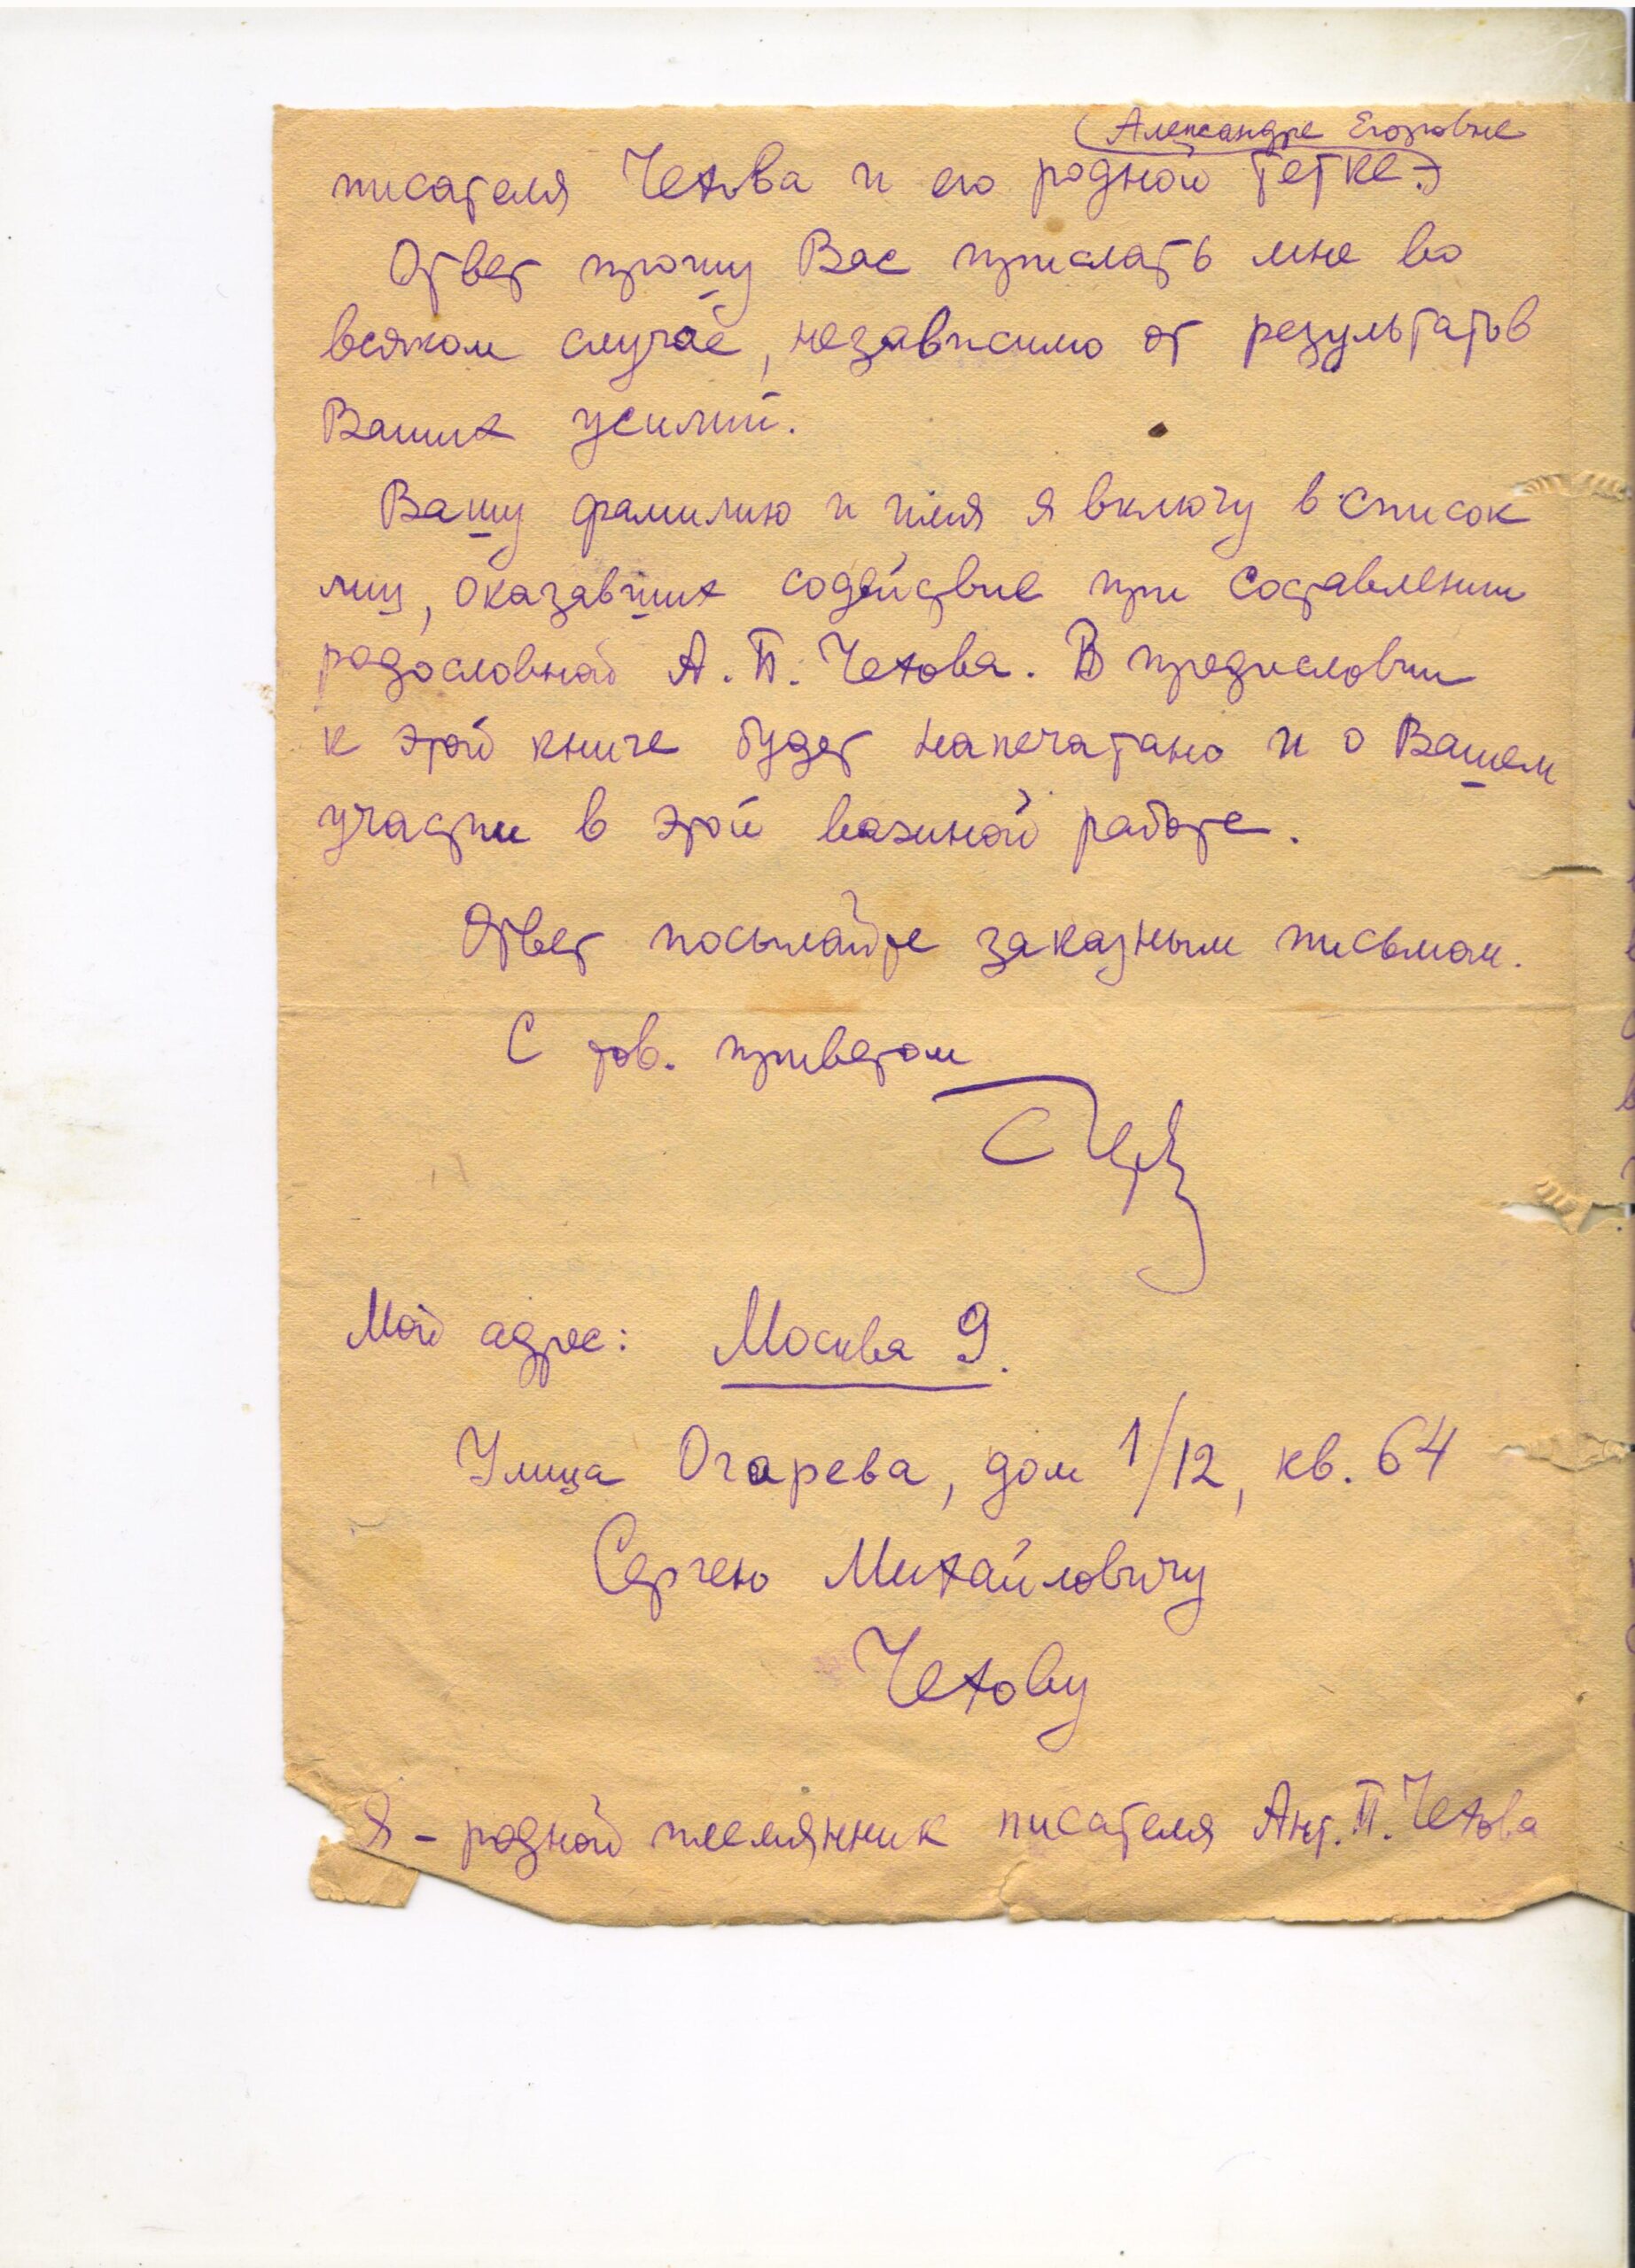 Александре Егоровне
писателя Чехова и его родной тетке.
Ответ прошу Вас прислать мне во
всяком случае, независимо от результатов
Ваших усилий.
Вашу фамилию и имя я включу в список
лиц, оказавших содействие при составлении
родословной А. П. Чехова. В предисловии
к этой книге будет напечатано и о Вашем
участии в этой важной работе.
Ответ посылайте заказным письмом.
С тов. приветом
Мой адрес: Москва 9.
Улица Огарева, дом 1/12, кв. 64
Сергею Михайловичу
Чехову
Я – родной племянник писателя Ант. П. Чехова